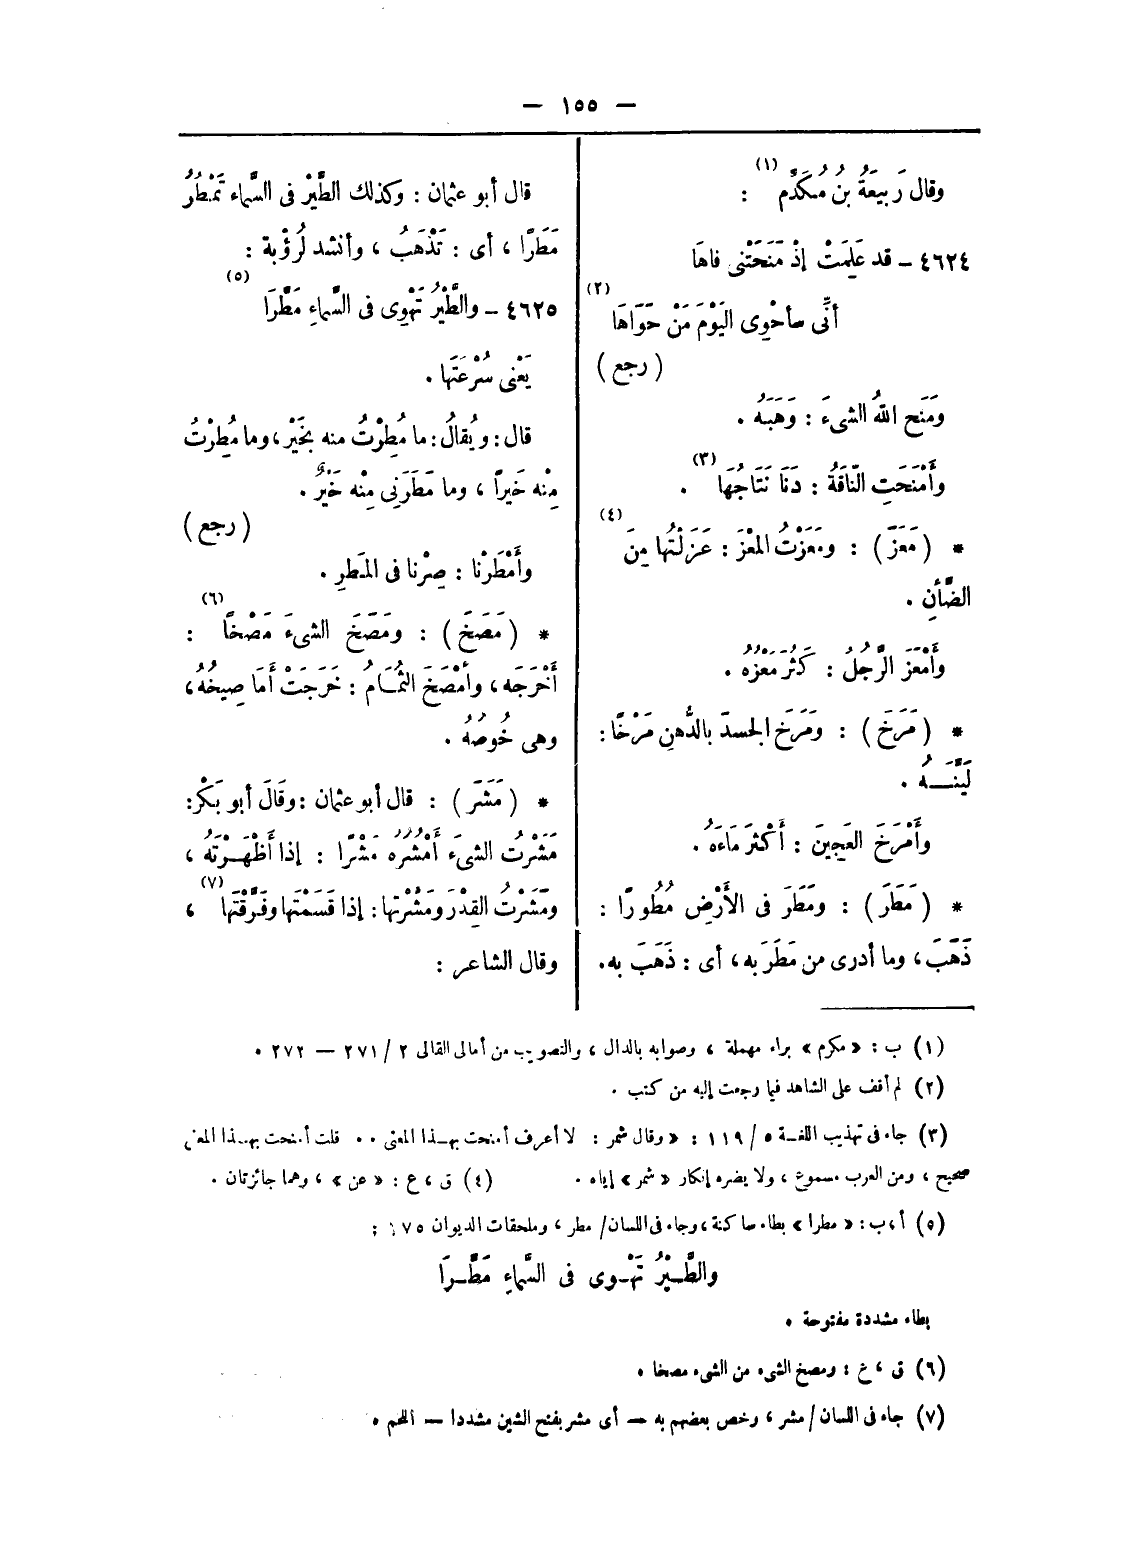 — ١٥٥ —
وقال رَبيعَةُ بنُ مُكَدَّم (١) :
٤٦٢٤ – قد عَلِمَتْ إذْ مَنَحَتْنى فاهَا
أنِّى سأحْوِى اليَوْمَ مَنْ حَوَاهَا (٢)
( رجع )
ومَنَح اللهُ الشىءَ : وَهَبَهُ .
وأَمْنَحَتِ النَّاقَةُ : دَنَا نَتَاجُهَا (٣) .
* ( مَعَزَ ) : ومَعَزْتُ المعْزَ : عَزَلْتُها مِنَ (٤)
الضَّأنِ .
وأَمْعَزَ الرَّجُلُ : كَثُرَ مَعْزُهُ .
* ( مَرَخَ ) : ومَرَخ الجسدَ بالدُّهنِ مَرْخًا :
لَيَّنَــهُ .
وأَمْرَخَ العَجِينَ : أَكْثَرَ مَاءَهُ .
* ( مَطَر ) : ومَطَرَ فى الأَرْضِ مُطُورًا :
ذَهَبَ ، وما أدرى من مَطَرَ به ، أى : ذَهَبَ به .
قال أبو عثمان : وكذلك الطَّيْرُ فى السَّماء تَمْطُرُ
مَطَرًا ، أى : تَذْهَبُ ، وأنشد لرُؤْبة :
٤٦٢٥ – والطَّيْرُ تَهْوِى فى السَّماءِ مَطَّرَا (٥)
يَعْنى سُرْعَتَها .
قال : ويُقالُ : ما مُطِرْتُ منه بخَيْرٍ ، وما مُطِرْتُ
مِنْه خَيراً ، وما مَطَرَنِى مِنْه خَيْرٌ .
( رجع )
وأَمْطَرْنا : صِرْنا فى المَطرِ .
* ( مَصَخَ ) : ومَصَخَ الشىءَ مَصْخًا (٦) :
أَخْرَجَه ، وأمْصَخَ الثُمَــامُ : خَرَجَتْ أَمَا صِيخُهُ ،
وهى خُوصُهُ .
* ( مَشَرَ ) : قال أبو عثمان : وقَالَ أبو بَكْر :
مَشَرْتُ الشىءَ أَمْشُرُهُ مَشْرًا : إذا أَظْهَــرْتَهُ ،
ومَشَرْتُ القِدْرَ ومَشَّرْتها : إذا قَسَمْتَها وفَرَّقْتَها (٧) ،
وقال الشاعر :
(١) ب : « مكرم » براء مهملة ، وصوابه بالدال ، والتصويب من أمالى القالى ٢ / ٢٧١ — ٢٧٢ .
(٢) لم أقف على الشاهد فيما رجعت إليه من كتب .
(٣) جاء فى تهذيب اللغــة ٥ / ١١٩ : « وقال شمر : لا أعرف أمنحت بهــذا المعنى .. قلت أمنحت بهــذا المعنى
صحيح ، ومن العرب مسموع ، ولا يضره إنكار « شمر » إياه . (٤) ق ، ع : « عن » ، وهما جائزتان .
(٥) أ ، ب : « مطرا » بطاء ساكنة ، وجاء فى اللسان / مطر ، وملحقات الديوان ١٧٥ :
والطَّــيْرُ تَهْــوِى فى السَّماءِ مَطَّــرَا
بطاء مشددة مفتوحة .
(٦) ق ، ع : ومصخ الشىء من الشىء مصخا .
(٧) جاء فى اللسان / مشر ، وخص بعضهم به — أى مشر بفتح الشين مشددا — اللحم .